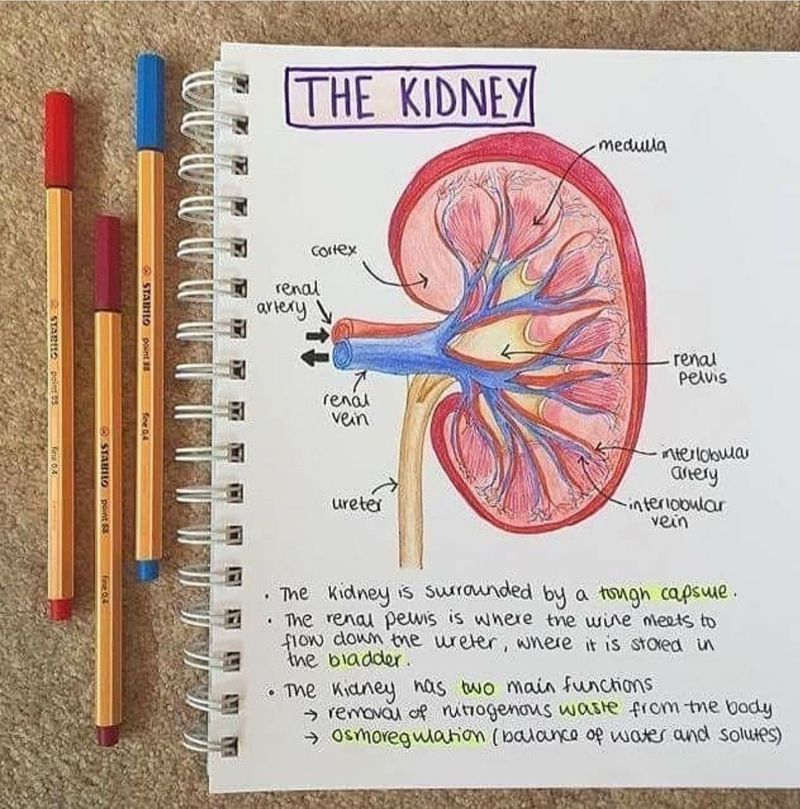 THE KIDNEY
medulla
cortex
renal
artery
renal
pelvis
renal
vein
interlobular
artery
ureter
interlobular
vein
• The Kidney is surrounded by a tough capsule.
• The renal pelvis is where the urine meets to
flow down the ureter, where it is stored in
the bladder.
• The Kidney has two main functions
→ removal of nitrogenous waste from the body
→ osmoregulation (balance of water and solutes)
STABILO point 88 fine 0.4
STABILO point 88 fine 0.4
STABILO point 88 fine 0.4